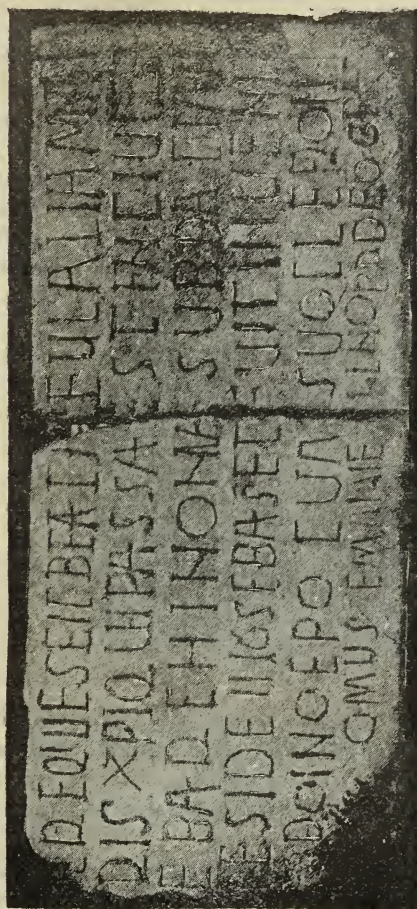 REQUIESCIT BEATA EULALIA M
XPI QUI PASSA EST IN CIUIT
E BARCHINONA SUB DACI
ESIDE II FEB ET FUIT INUENT
DOINO EPO CUM SUO CLERO IN
OMUS MARIE DEO GR